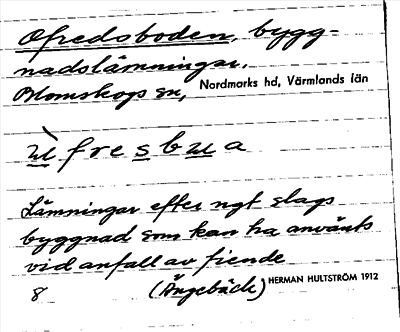 Ofredsboden, bygg-
nadslämningar.
Blomskogs sn, Nordmarks hd, Värmlands län
ùfresbua
Lämningar efter ngt slags
byggnad som kan ha använts
vid anfall av fiende
8 (Ängebäck) HERMAN HULTSTRÖM 1912